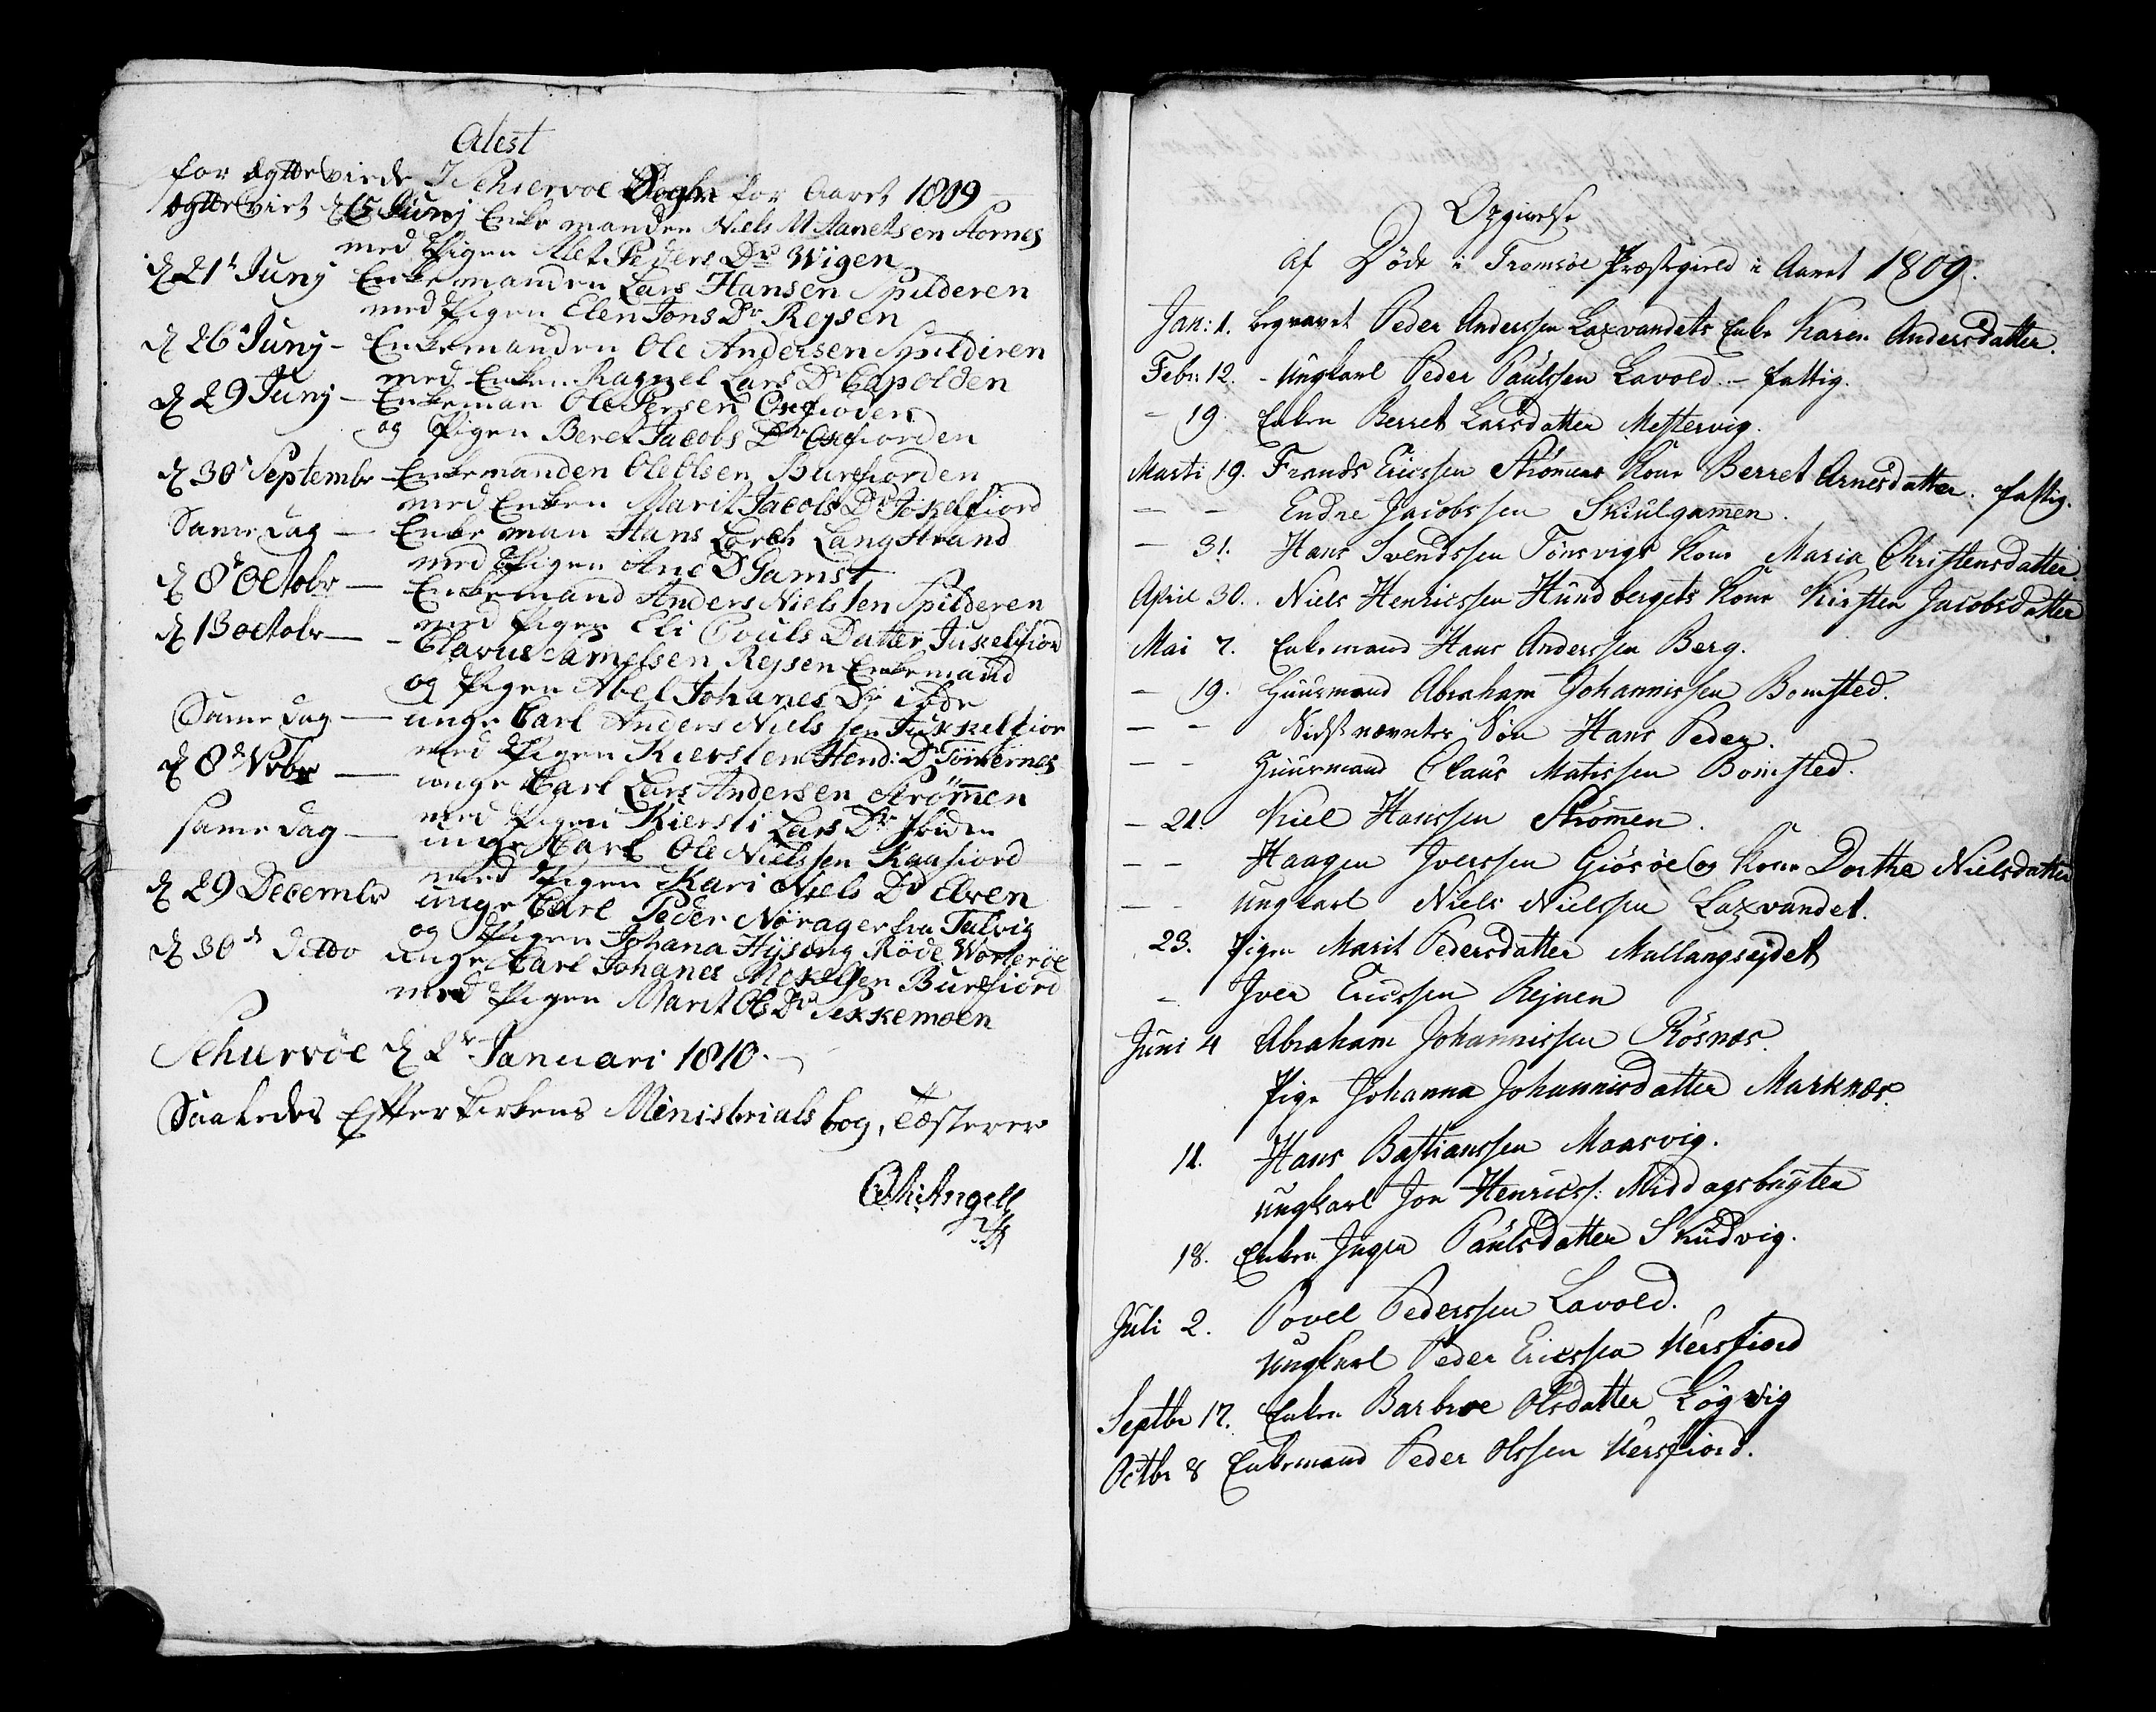 Atest
for Ægtteviede I Schiervøe Sogn for Aaret 1809
Ægtteviet d 15 Junj Enkemanden Niels M Aanetsen Hornes
med Pigen Alet Peders Dr Wigen
d 21t Junj Enkemanden Lars Hansen Spilderen
med Pigen Elen Jons Dr Rejsen
d 26t Junj - Enkemanden Ole Andersen Spildiren
med Enken Ragnel Lars Dr Capolden
d 29 Junj - Enkeman Ole Persen Oxfiorden
og Pigen Beret Jacobs Dr Oxfiorden
d 30t Septembr - Enkemanden Ole Olsen Burfiorden
med Enken Marit Jacobs Dr Jøkelfiord
Same dag - Enke man Hans Lorch Langstrand
med Pigen Ane D Gamst
d 8t Octobr - Enkemand Anders Nielssen Spilderen
med Pigen Eli Pouls Datter Juckelfior
d 13 octobr - - Clavus Samelsen Rejsen Enkemand
og Pigen Abel Johanes Dr ibde
Same dag - unge Carl Anders Nielssen Juckelfior
med Pigen Kiersten Hend: Dr Tømernes
d 8d Nvbr - unge Carl Lars Andersen Strømmen
med Pigen Kiersti Lars Dr
same dag - unge Karl Ole Nielssen Kaafiord
med Pigen Kari Niels Dr Elven
d 29 Decembr unge Carl Peder Nørager fra Talvig
og Pigen Johana Hysing Røde Worterøe
d 30d detto unge Carl Johanes Mekelsen Burfiord
med Pigen Marit Ols Dr Sekkemoen
Schurvøe d 2t Januari 1810.
Saaledes Efter Kirkens Ministrials bog, tæsterer
Angell
Opgivelse
af Døde i Tromsøe Præstegield i Aaret 1809.
Jan: 1. begravet Peder Anderssen Laxvandets Enke Karen Andersdatter.
Febr: 12. - Ungkarl Peder Paulssen Lavold. - fattig.
- 19. Enken Berret Larsdatter Mestervig.
Marti 19. Frands Ericssen Strømens Kone Berret Arnesdatter. fattig.
- - Endre Jacobssen Skiulgammen.
- 31. Hans Svendssen Tønsvigs Kone Maria Christensdatter.
April 30. Niels Henricssen Hundbergets Kone Kirsten Jacobsdatter
Mai 7. Enkemand Hans Anderssen Berg.
- 19. Huusmand Abraham Johannissen Bomsted.
- - Sidstnævntes Søn Hans Peder.
- - Huusmand Claus Matissen Bomsted.
- 21. Niel Hanssen Strømmen.
- - Haagen Iverssen Giøsøe og Kone Dorthe Nielsdatter
- - Ungkarl Niels Nielssen Laxvandet.
23. Pigen Marit Pedersdatter Mallangsejdet
- Iver Ericssen Rejnen
Juni 4 Abraham Johannissen Røsnæs.
Pige Johanna Johannisdatter Marknæs.
11. Hans Bastianssen Maasvig.
Ungkarl Jon Henricss: Middagsbugten
18. Enken Inger Paulsdatter Skudvig.
Juli 2. Povel Pederssen Lavold.
Ungkarl Peder Ericssen Kersfiord
Septbr 17. Enken Barbroe Olsdatter Løgvig
Octbr 8 Enkemand Peder Olssen Kersfiord.